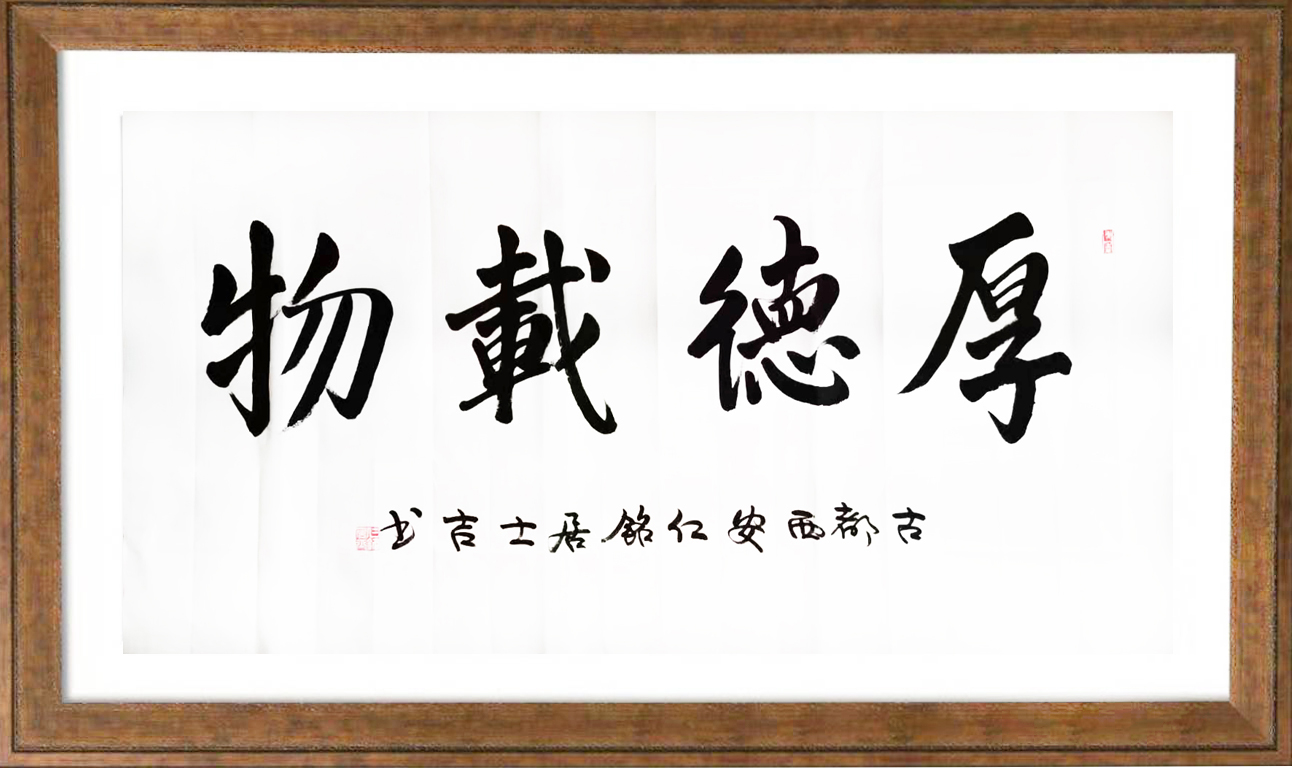 厚德載物
古都西安仁銘居士吉书